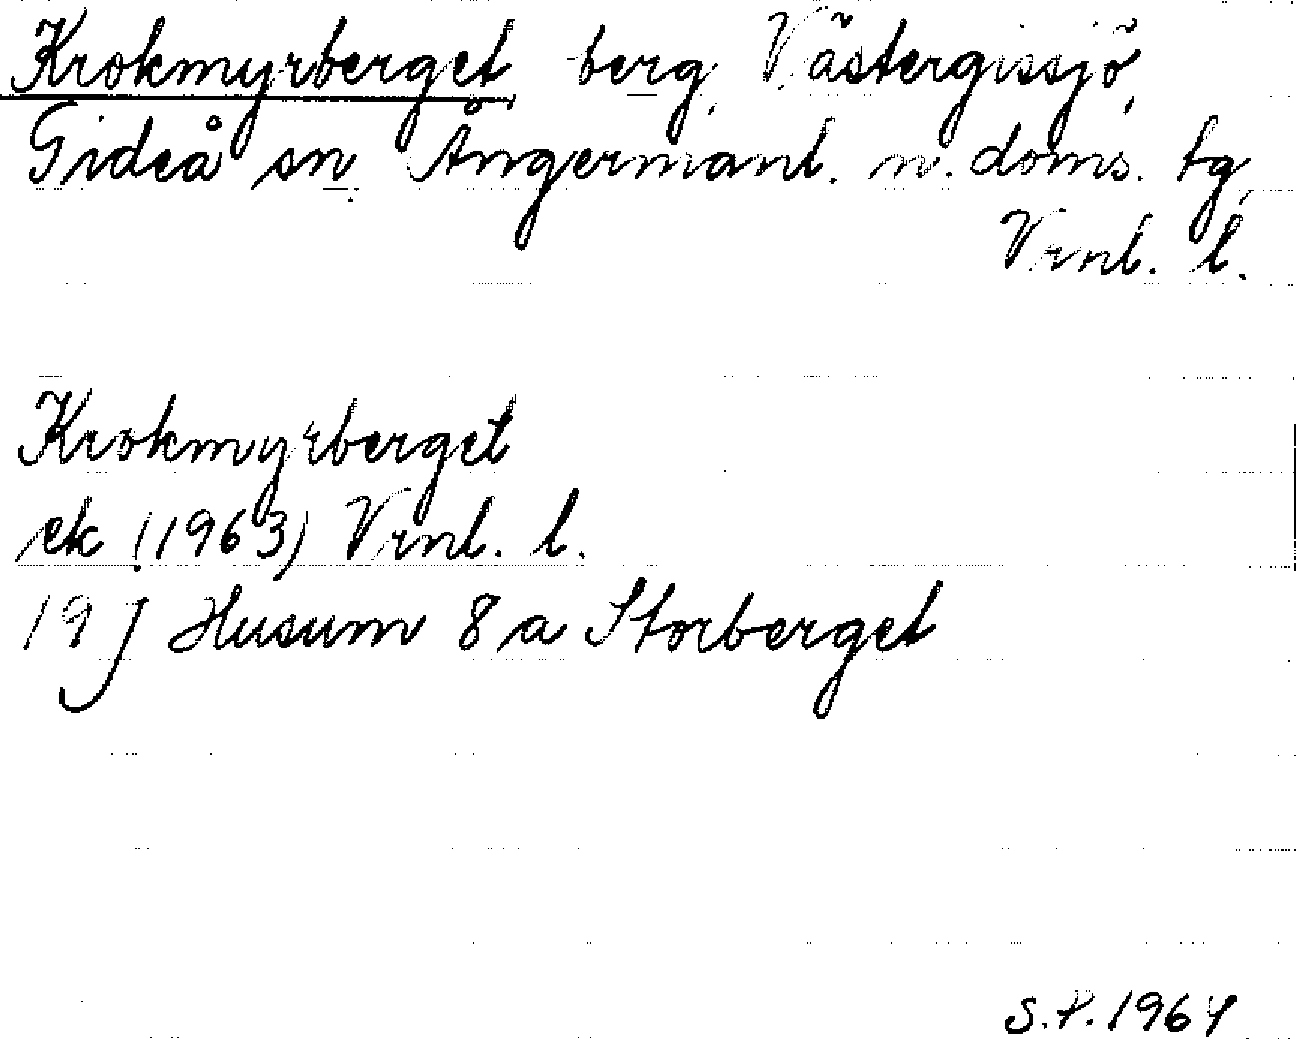 Krokmyrberget berg, Västergissjö,
Gideå sn, Ångermanl. n. doms. tg,
Vrnl. l.
Krokmyrberget
ek (1963) Vrnl. l.
19 J Husum 8 a Storberget
S.P. 1964